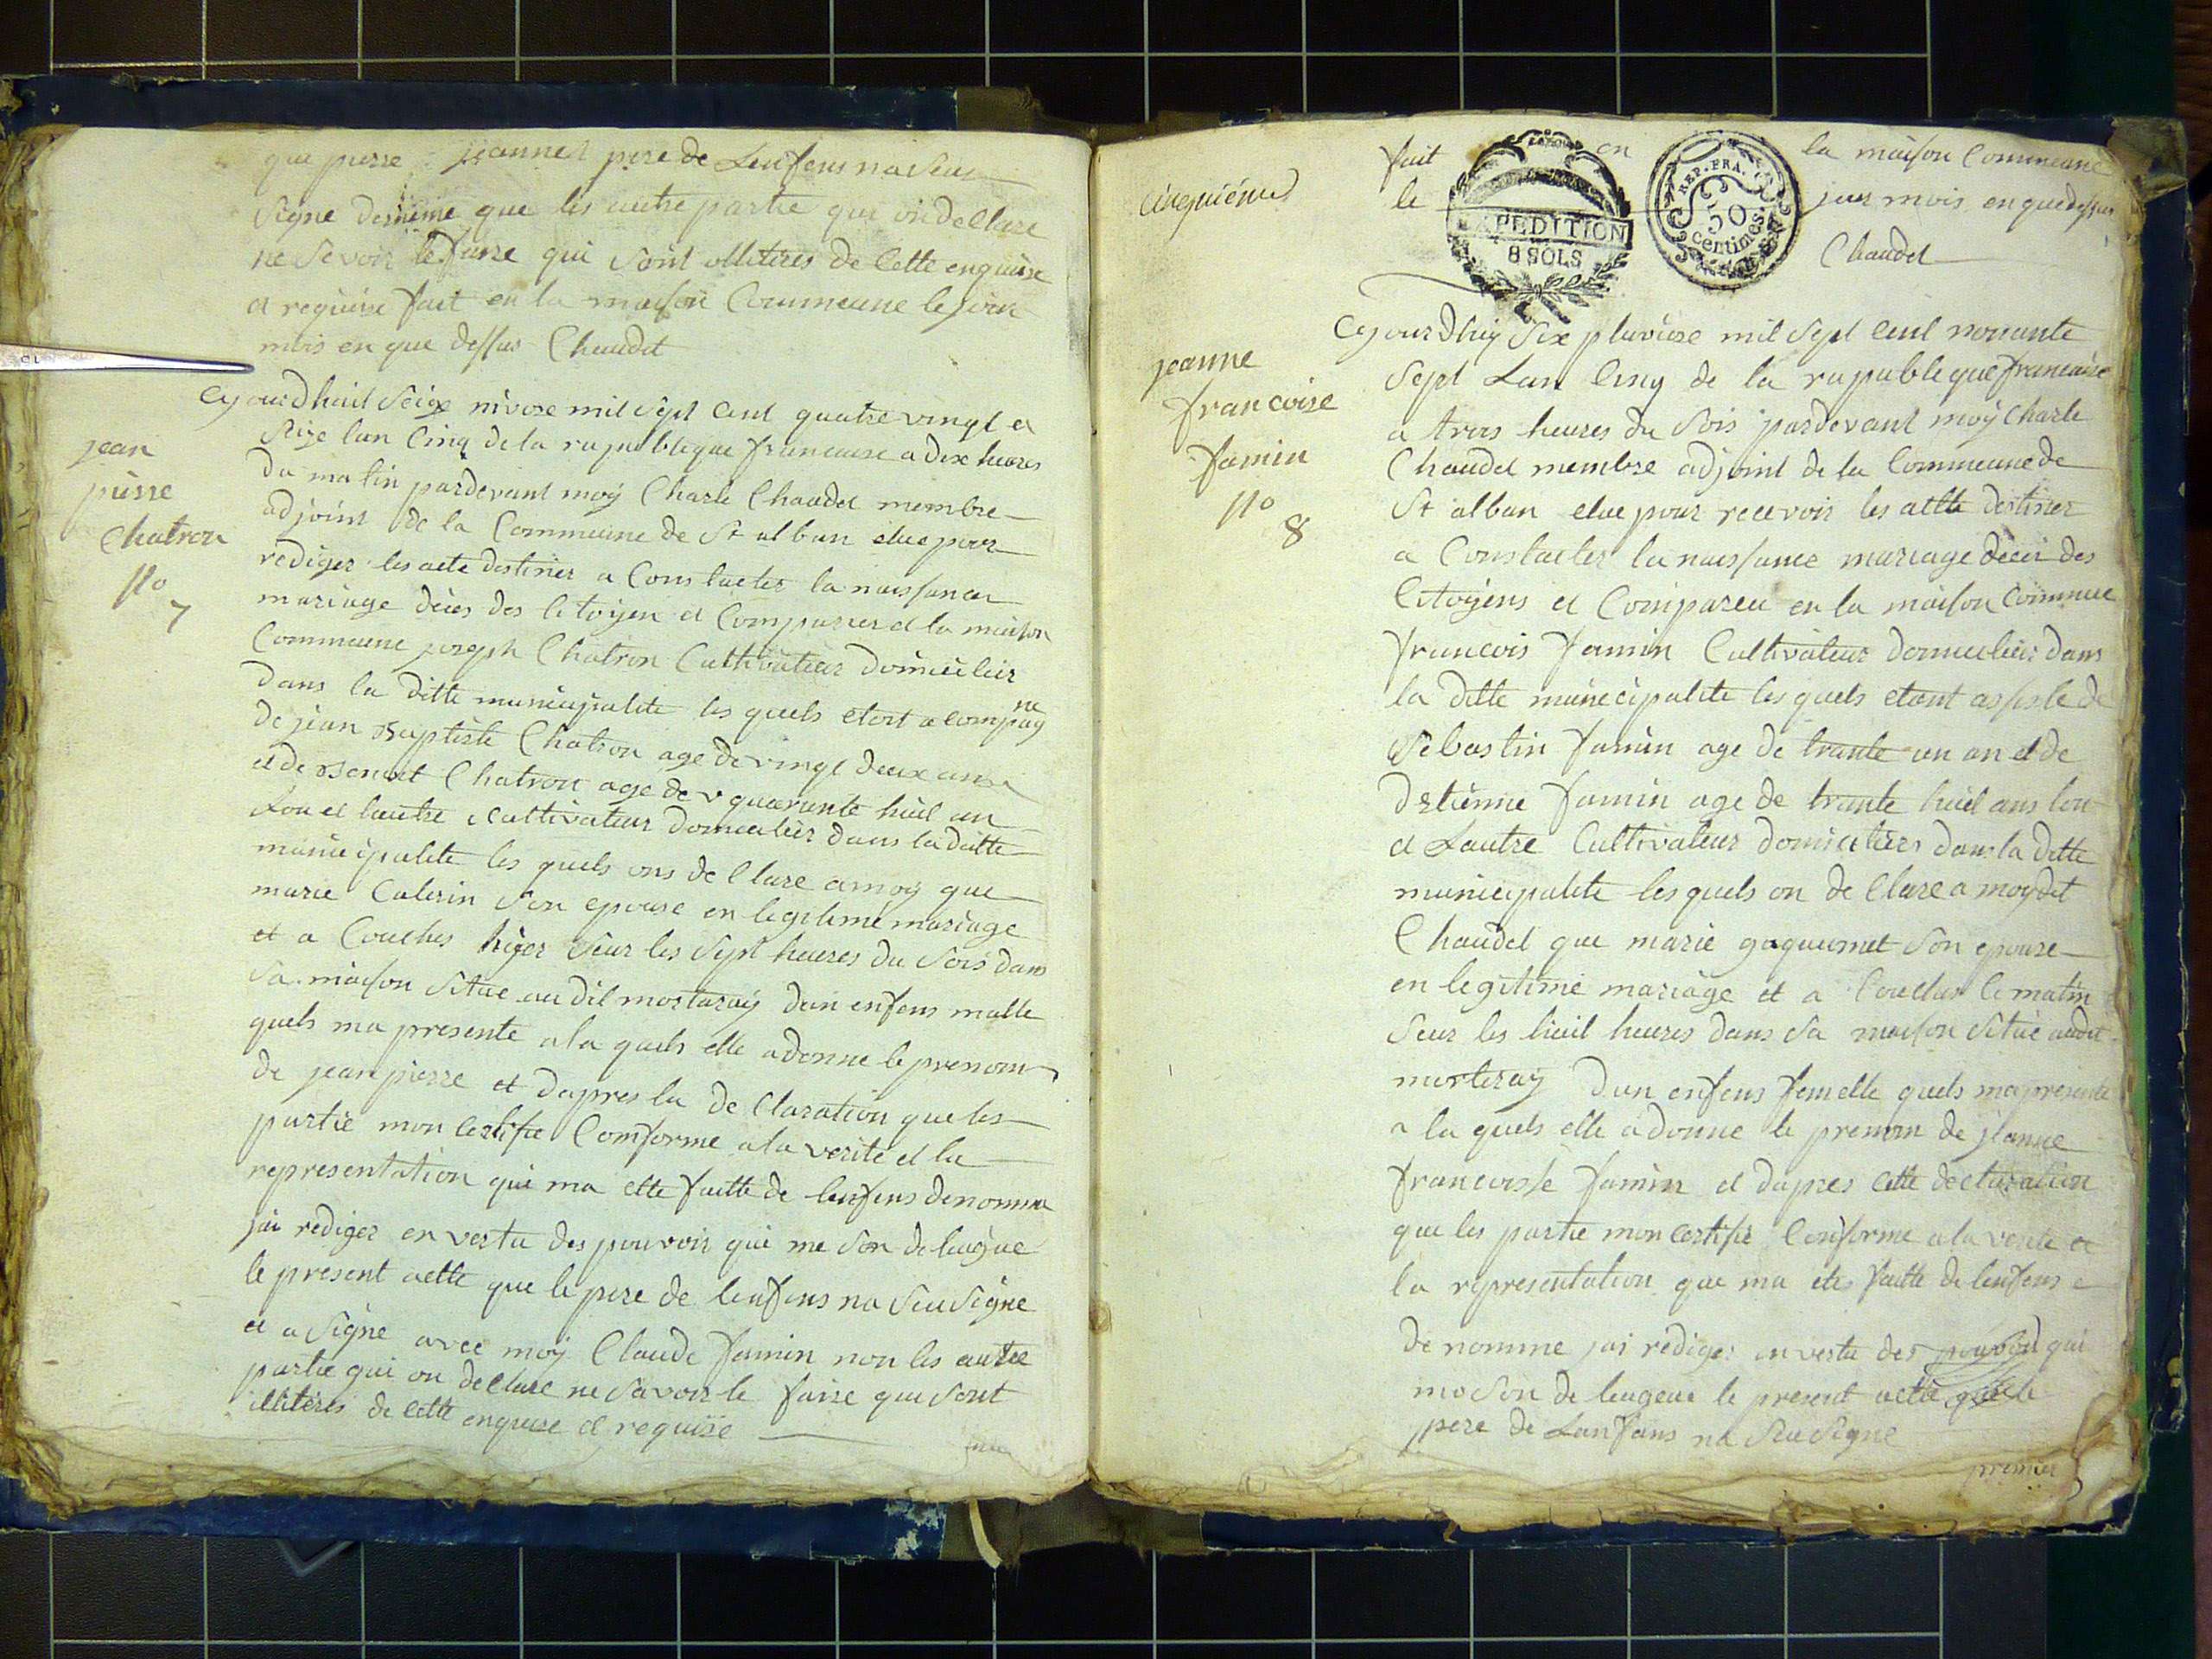 que pierre jeannet pere de Lenfens na seus
signe desmeme que les autre partie qui on declare
ne sevoir le faire qui sont illitires de cette enquise
et requise fait en la maison Commeune le jour
mois en que dessus Chaudet
jean
pierre
Chatron
No
7
Cy jourdhuit seize nivose mil sept cent quatre vingt et
seize lan cinq de la rupublique francaise a dix heures
du matin pardevant moy Charle Chaudet membre
adjoint de la Commeune de St alban elue pour
rediger les acte destiner a Constacter la naissance
mariage déces des Citoyen et Comparue et la maison
Commeune joseph Chatron Cultivateur domicilier
dans la ditte municipalite les quels etoit acompagne
de jean Baptiste Chatron age de vingt deux ans
et de Benoit Chatron age de quarante huit an
Lon et lautre cultivateur domicilier dans la ditte
municipalite les quels ons declare a moy que
marie Caterin son epouse en legitime mariage
et a Couches higer seur les sept heures du soir dans
sa maison situe au dit mortaray dun enfens malle
quels ma presente a la quels elle a donne le prenom
de jean pierre et dapres la declaration que les
partie mon certifie Comforme a la verite et la
representation qui ma ette faitte de lenfens denomme
jai rediger en vertu des pouvoir qui me son deleugue
le present actte que le pere de lenfens na seu signe
et a signe avec moy Claude famin non les autre
partie qui on declare ne savoir le faire que sont
illiteres de cette enquise et requise
cinquiéme
fait en la maison Commeune
le jour mois en que dessus
Chaudet
EXPEDITION
8 SOLS
REP. FRA.
50
centimes
jeanne
francoise
famin
No
8
Cy jourdhuy six pluviose mil sept cent nonante
sept Lan Cinq de la rupublique francaise
a trois heures du soir pardevant moy Charle
Chaudet membre adjoint de la Commeune de
St alban elue pour recevoir les actte destiner
a Constacter la naissance mariage décer des
Citoyens et Compareu en la maison Commue
francois famin Cultivateur domicilier dans
la ditte municipalite les quels etant assiste de
Sebastin famin age de trante un an et de
Detienne famin age de trante huit ans lon
et Lautre Cultivateur domicilier dans la ditte
municipalite les quels on declare a moy dit
Chaudet que marie gaquemet son epouse
en legitime mariage et a Couches le matin
seur les huit heures dans sa maison situe audit
morteray dun enfens femelle quels ma presente
a la quels elle a donne le prenom de jeanne
francoisse famin et dapres cette declaration
que les partie mon certifie Conforme a la verite et
la representation que ma etes faitte de lenfens
denomme jai rediger en vertu des pouvoir qui
mo son deleugeue le present actte que le
pere de Lanfans na seu signe
premier